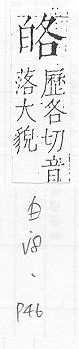 歷各切音
落大貌
白
P46